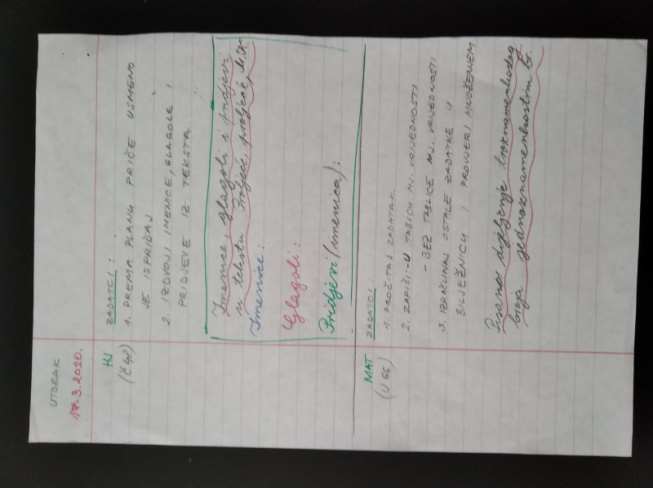 UTORAK
17.3.2020.
HJ
(Č 42)
ZADATCI:
1. PREMA PLANU PRIČE USMENO
JE ISPRIČAJ
2. IZDVOJI IMENICE, GLAGOLE I
PRIDJEVE IZ TEKSTA
Imenice, glagoli i pridjevi
u tekstu
Imenice:
Glagoli:
Pridjevi (imenica):
MAT
(U 66)
ZADATCI:
1. PROČITAJ ZADATAK
2. ZAPIŠI: U TABLICU MJ. VRIJEDNOSTI
- BEZ TABLICE MJ. VRIJEDNOSTI
3. IZRAČUNAJ OSTALE ZADATKE U
BILJEŽNICU I PROVJERI MNOŽENJEM
Pisano dijeljenje troznamenkastog
broja jednoznamenkastim b.